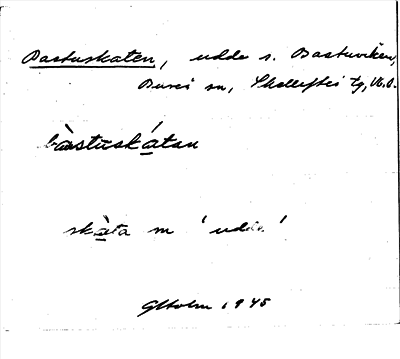 Bastuskaten, udde s. Bastuviken,
Bureå sn, Skellefteå tg, Vb.
bàstuskátan
skàta m 'udde'
GHolm 1945